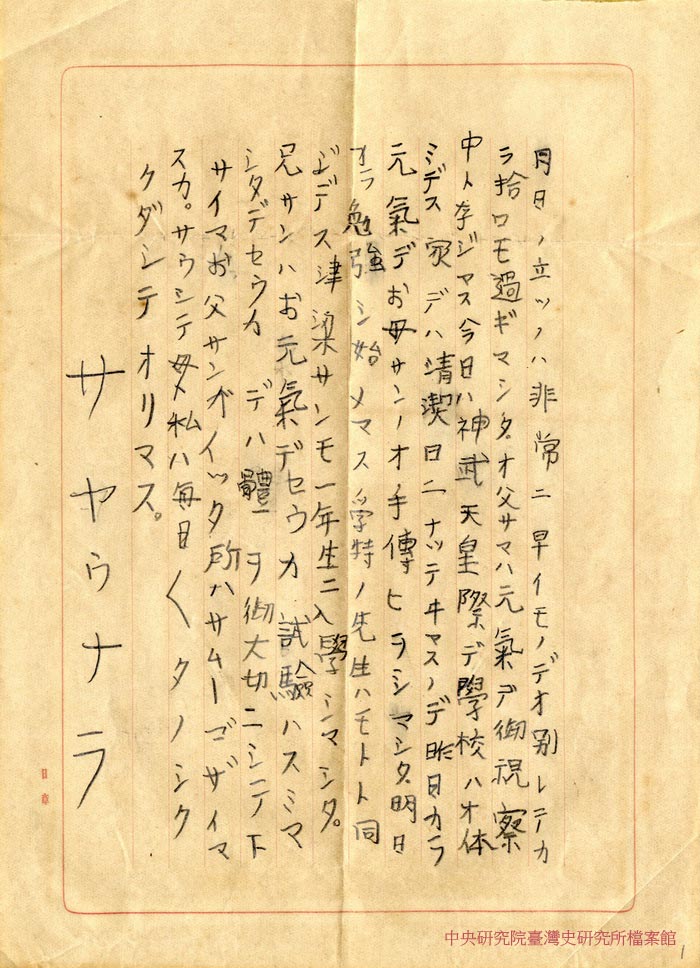 月日ノ立ツノハ非常ニ早イモノデオ別レテカ
ラ拾日モ過ギマシタ。オ父サマハ元氣デ御視察
中ト存ジマス今日ハ神武天皇際デ學校ハオ休
ミデス家デハ清潔日ニナッテヰマスノデ昨日カラ
元氣デお母サンノオ手傳ヒヲシマシタ。明日
カラ勉强シ始メマス 特ノ先生ハモトト同
ジデス津梁サンモ一年生ニ入學シマシタ。
兄サンハお元氣デセウカ 試驗ハスミマ
シタデセウカ デハ體ヲ御大切ニシテ下
サイマお父サンガイッタ所ハサムーゴザイマ
スカ。サウシテ 私ハ毎日〱タノシク
クダシテオリマス。
サヤウナラ
日章
中央研究院臺灣史研究所檔案館
1